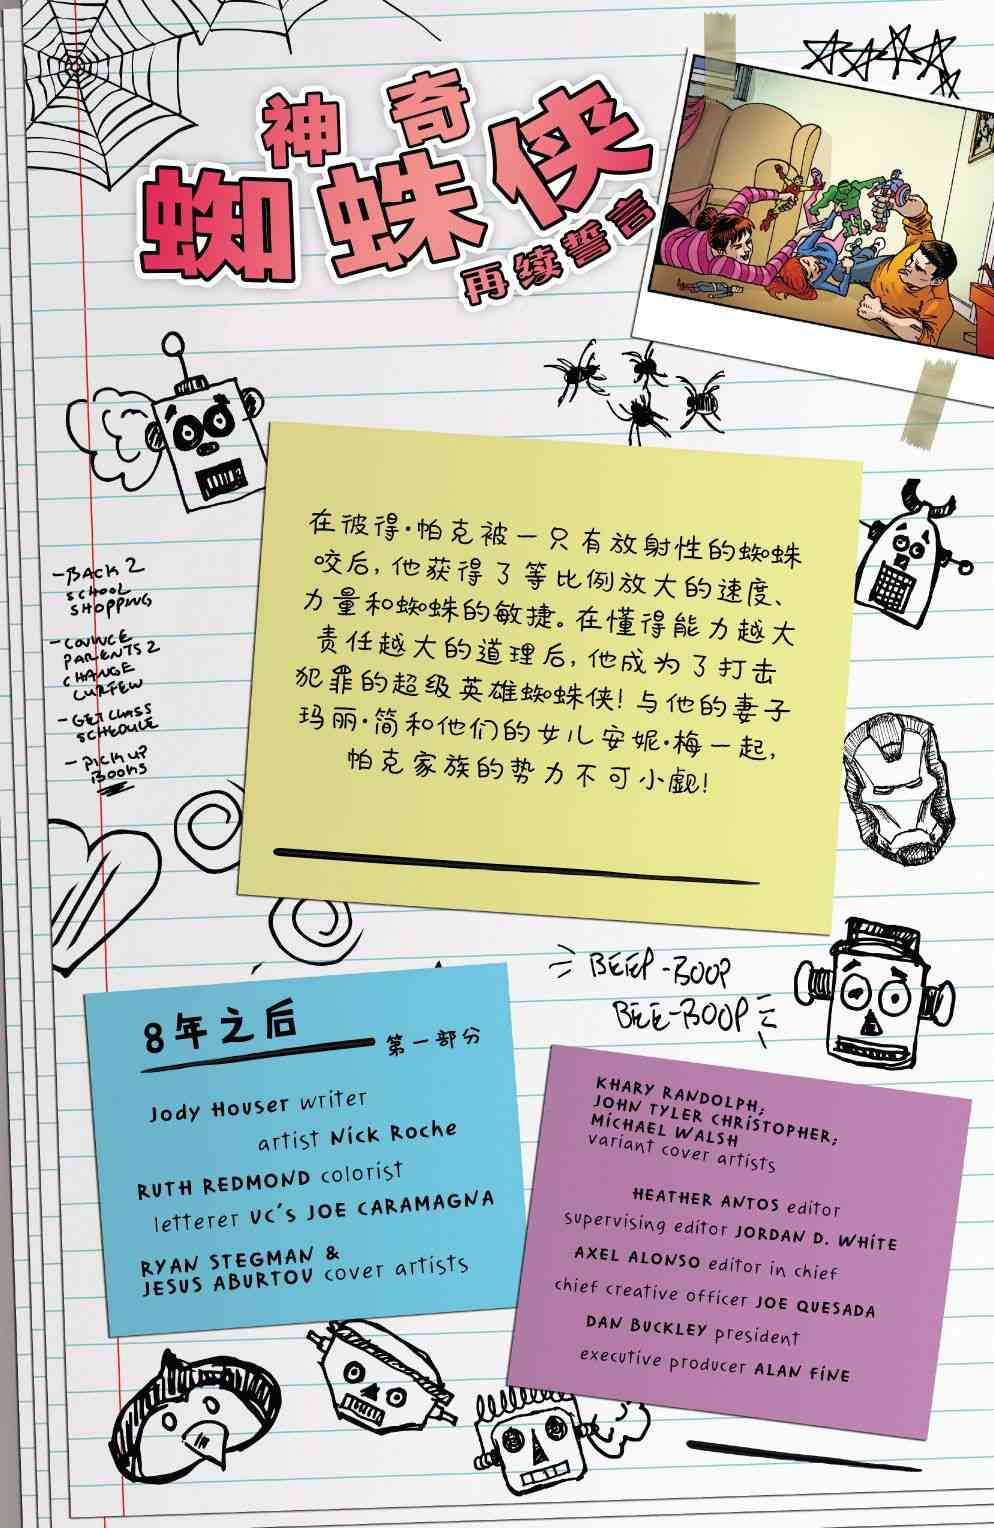 神奇
蜘蛛侠
再续誓言
在彼得·帕克被一只有放射性的蜘蛛
咬后,他获得了等比例放大的速度、
力量和蜘蛛的敏捷。在懂得能力越大
责任越大的道理后,他成为了打击
犯罪的超级英雄蜘蛛侠!与他的妻子
玛丽·简和他们的女儿安妮·梅一起,
帕克家族的势力不可小觑!
-BACK 2
SCHOOL
SHOPPING
-CONVINCE
PARENTS 2
CHANGE
CURFEW
-GET CLASS
SCHEDULE
-PICK UP
BOOKS
BEEP-BOOP
BEE-BOOP
8年之后
第一部分
Jody Houser writer
artist Nick Roche
RUTH REDMOND colorist
letterer VC's JOE CARAMAGNA
RYAN STEGMAN &
JESUS ABURTOV cover artists
KHARY RANDOLPH;
JOHN TYLER CHRISTOPHER;
MICHAEL WALSH
variant cover artists
HEATHER ANTOS editor
supervising editor JORDAN D. WHITE
AXEL ALONSO editor in chief
chief creative officer JOE QUESADA
DAN BUCKLEY president
executive producer ALAN FINE